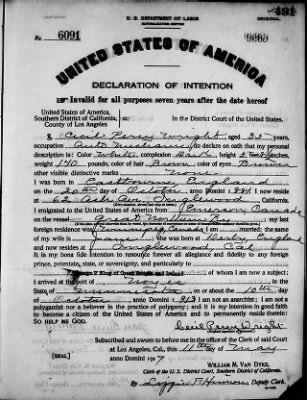 491
U. S. DEPARTMENT OF LABOR
NATURALIZATION SERVICE
ORIGINAL
No. 6091
UNITED STATES OF AMERICA
DECLARATION OF INTENTION
Invalid for all purposes seven years after the date hereof
United States of America,
Southern District of California,
County of Los Angeles
In the District Court of the United States.
I, Cecil Percy Wright, aged 35 years,
occupation Auto Mechanic, do declare on oath that my personal
description is: Color White, complexion Dark, height 5 feet inches,
weight 140 pounds, color of hair Brown, color of eyes Brown
other visible distinctive marks None
I was born in Eastbourne England
on the day of October, anno Domini 1881; I now reside
at Ash Ave., Inglewood, California.
I emigrated to the United States of America from Canada
on the vessel; my last
foreign residence was Winnipeg Canada; I am married; the name
of my wife is; she was born in England
and now resides at Inglewood Cal
It is my bona fide intention to renounce forever all allegiance and fidelity to any foreign
prince, potentate, state, or sovereignty, and particularly to
George V King of Great Britain and Ireland, of whom I am now a subject; I
arrived at the port of
State of on or about the 10th day
of October, anno Domini 1913; I am not an anarchist; I am not a
polygamist nor a believer in the practice of polygamy; and it is my intention in good faith
to become a citizen of the United States of America and to permanently reside therein:
SO HELP ME GOD.
Cecil Percy Wright
Subscribed and sworn to before me in the office of the Clerk of said Court
at Los Angeles, Cal., this 11th day of May
[SEAL]
anno Domini 1917
WILLIAM M. VAN DYKE,
Clerk of the U. S. District Court, Southern District of California.
By Deputy Clerk.